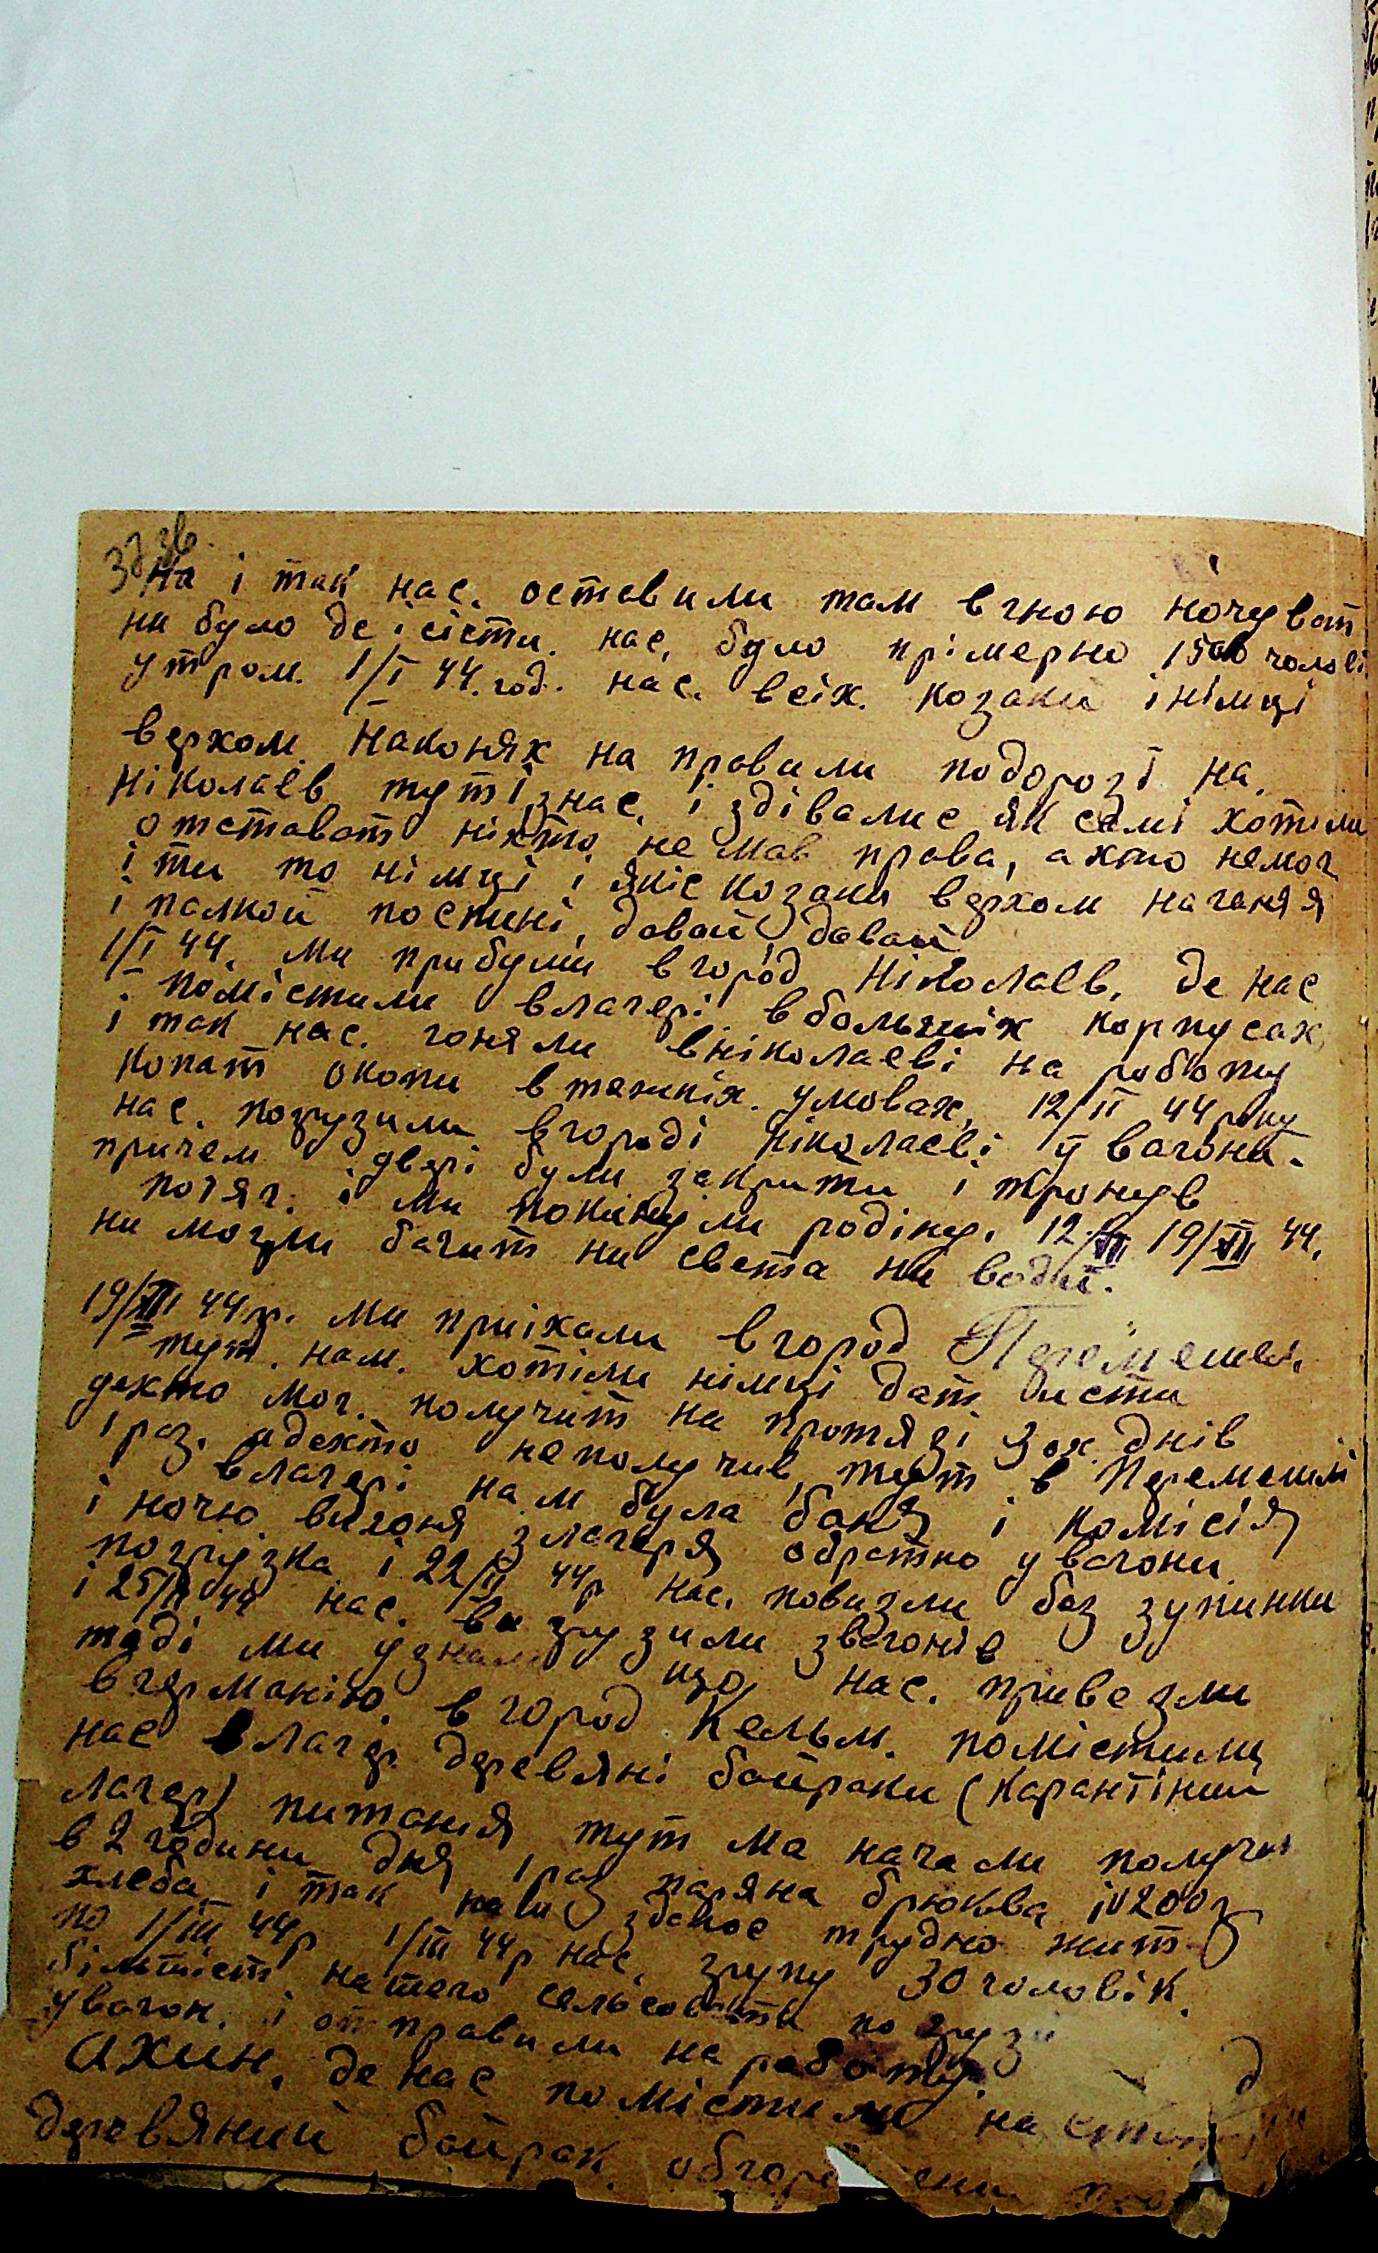 на і так нас. оставили там вгною ночуват
ни було де і сісти. нас, було прімерно 1500 чолові
утром. 1/I 44.год. нас. всіх. козаки інімці
верхом. Наконях на правили подорозі на.
Ніколаєв тут із нас. і здівалис як самі хотіли
отстават ніхто не мав права, ахто немог
іти то німці і якіс козаки верхом наганяя
і палкой поспині, давай давай
1/I 44. ми прибули вгород Ніколаєв, де нас
помістили влагері вбольших корпусах
і так нас. гоняли вніколаеві на роботу
копат окопи втяжкіх. умовах, 12/II 44 року
нас. погрузили вгороді Ніколаєві у вагони.
причем двері були закрити і тронув
потяг. і ми покинули родіну. 12/ 19/ 44.
ни могли бачит ни света ни води.
19/ 44р. ми приїхали вгород Перемешел.
тут. нам. хотіли німці дат їсти
дехто мог. получит на протязі 3ох днів
1 раз. адехто неполучив, тут в Перемешлі
влагері нам була баня і комісія
і ночю. вигоня злагеря обратно увагони
погрузка і 22/II 44р нас. повизли без зупинки
і 25/II 44 нас. ви грузили звагонів
тоді ми узнали що нас. привезли
вгерманію. вгород Кельм. помістили
нас влагер деревяні байраки (Карантіний
лагер) питания тут ми начали получат
в 2 години дня 1 раз паряна брюква і 200г
хлеба і так трудно жит
по 1/III 44р 1/III 44р нас, групу 30 чоловік.
більшіст нашего сельсовета по грузи
увагон. і от правили на работу.
Ахин. де нас помістили на
деревяний байрак.